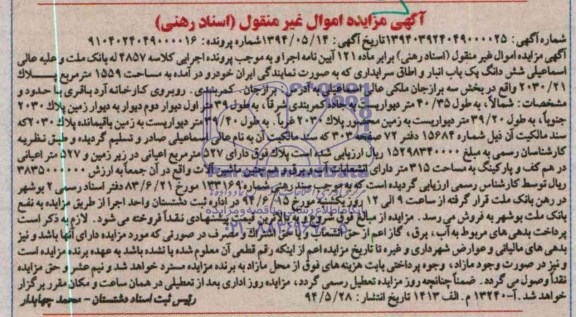 آگهی مزایده اموال غیر منقول (اسناد رهنی)
شماره آگهی: ۱۳۹۴۰۳۹۲۴۰۴۹۰۰۰۰۲۵ تاریخ آگهی: ۱۳۹۴/۰۵/۱۴ شماره پرونده: ۹۱۰۴۰۲۴۰۴۹۰۰۰۰۱۶
آگهی مزایده اموال غیر منقول (اسناد رهنی) برابر ماده ۱۲۱ آیین نامه اجرا و به موجب پرونده اجرایی کلاسه ۴۸۵۷ له بانک ملت و علیه عالی
اسماعیلی شش دانگ یک باب انبار و اطاق سرایداری که به صورت نمایندگی ایران خودرو در آمده به مساحت ۱۵۵۹ مترمربع پلاک
۲۰۳۰/۲۱ واقع در بخش سه برازجان ملکی عالی اسماعیلی به آدرس: برازجان - کمربندی، روبروی کارخانه آرد باقری با حدود و
مشخصات: شمالاً، به طول ۴۰/۳۵ متر دیواریست کمربندی شرقاً، به طول ۳۹ متر اول دیوار دوم دیوار به دیوار زمین پلاک ۲۰۳۰
جنوبا، به طول ۳۹/۲۰ متر دیواریست به زمین مذکور پلاک ۲۰۳۰ غرباً، به طول ۳۹/۴۰ متر دیواریست به زمین باقیمانده پلاک ۲۰۳۰ که
سند مالکیت آن ذیل شماره ۱۵۶۸۴ دفتر ۷۲ صفحه ۳۰۳ که سند مالکیت آن به نام عالی اسماعیلی صادر و تسلیم گردیده و طبق نظریه
کارشناسان رسمی به مبلغ ۱۵۲۹۸۳۴۰۰۰۰ ریال ارزیابی شده است پلاک فوق دارای ۵۲۷ مترمربع اعیانی در زیر زمین و ۵۲۷ متر اعیانی
در هم کف و پارکینگ به مساحت ۳۱۵ متر دارای انشعابات آب و برق و هم چنین ماشین آلات واقع در آن جمعاً به ارزش ۳۸۳۵۰۰۰۰۰۰
ریال توسط کارشناس رسمی ارزیابی گردیده است که به موجب سند رهنی شماره ۱۳۳۱۶۹ مورخ ۸۳/۶/۲۱ دفتر اسناد رسمی ۲ بوشهر
در رهن بانک ملت قرار گرفته از ساعت ۹ الی ۱۲ روز یکشنبه مورخ ۹۴/۶/۱۵ در اداره ثبت دشتستان واحد اجرا از طریق مزایده به نفع
بانک ملت بوشهر به فروش می رسد. مزایده از مبلغ شروع و به بالاترین قیمت پیشنهادی نقداً فروخته می شود. لازم به ذکر است
پرداخت بدهی های مربوط به آب، برق، گاز اعم از حق انشعاب و مصرف در صورتی که مورد مزایده دارای آنها باشد و نیز
بدهی های مالیاتی و عوارض شهرداری و غیره تا تاریخ مزایده اعم از اینکه رقم قطعی آن معلوم شده یا نشده باشد به عهده برنده مزایده است
و نیز در صورت وجود مازاد، وجوه پرداختی بابت هزینه های فوق از محل مازاد به برنده مزایده مسترد خواهد شد و نیم عشر و حق مزایده
نقداً وصول می گردد. ضمناً چنانچه روز مزایده تعطیل رسمی گردد، مزایده روز اداری بعد از تعطیلی در همان ساعت و مکان مقرر برگزار
خواهد شد. آ-۱۳۲۴۰ م. الف ۱۴۱۳ تاریخ انتشار: ۹۴/۵/۲۸ رئیس ثبت اسناد دشتستان - محمد چهابدار